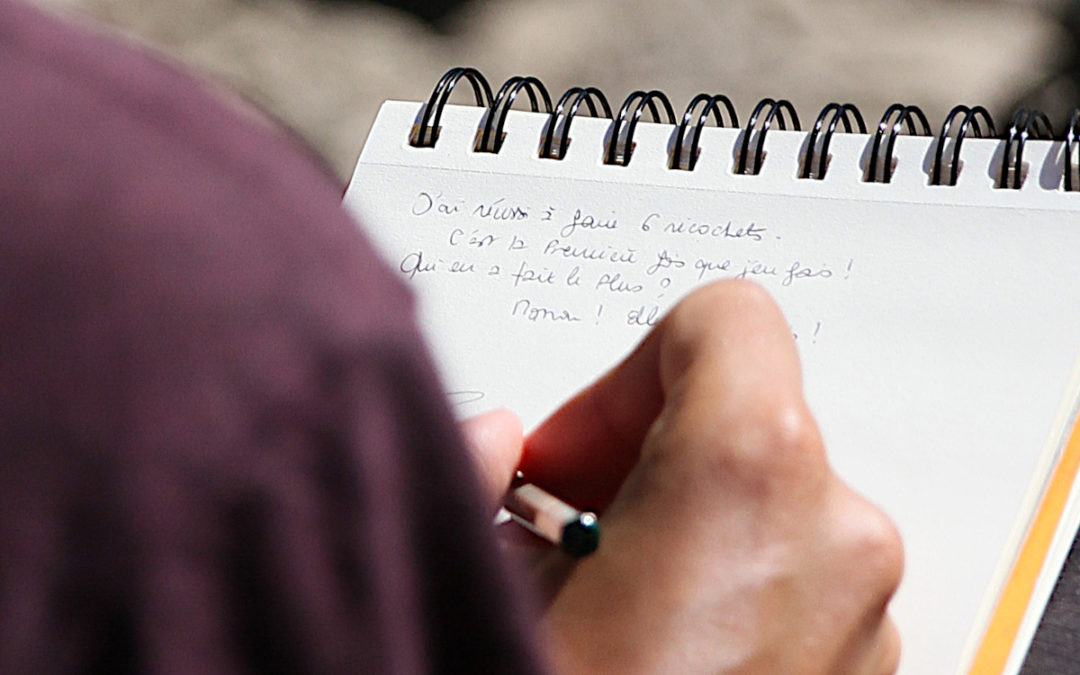 J'ai réussi à faire 6 ricochets.
C'est la première fois que j'en fais !
Qui en a fait le plus ?
Manon ! elle
!